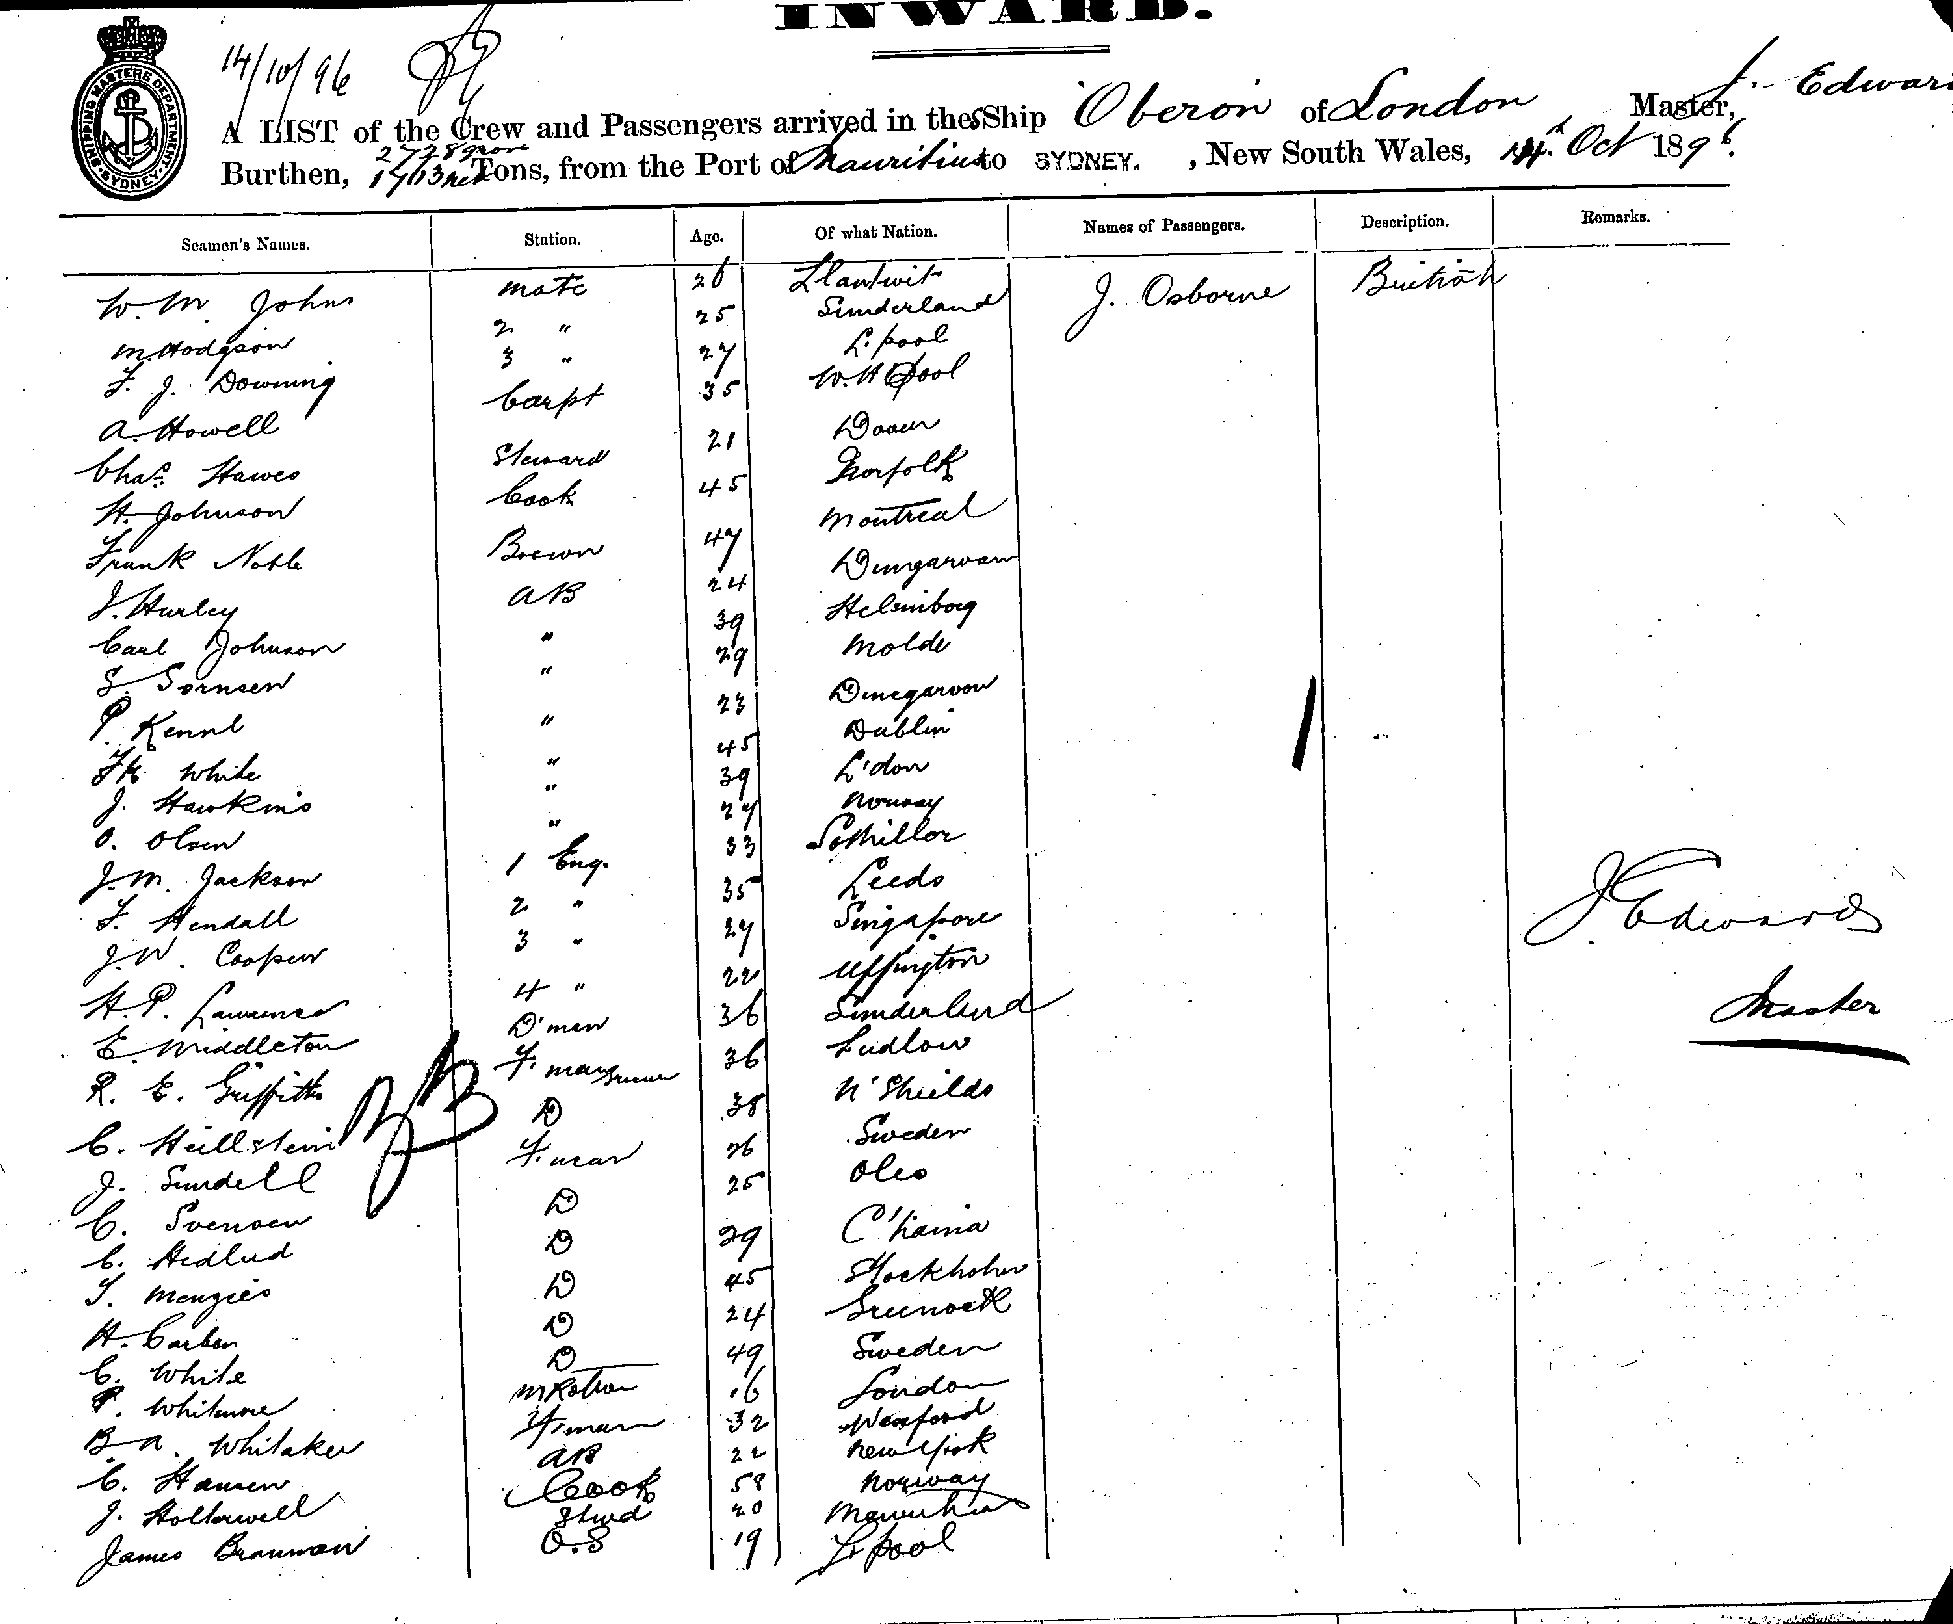 INWARD.
SHIPPING MASTERS DEPARTMENT SYDNEY
14/10/96
A LIST of the Crew and Passengers arrived in the SShip Oberon of London, Master, J. Edwards
Burthen, 2728 gross 1713 net Tons, from the Port of Mauritius to SYDNEY. , New South Wales, 14th Oct 1896.
Seamen's Names. Station. Age. Of what Nation. Names of Passengers. Description. Remarks.
W. M. Johns mate 26 Llantwit J. Osborne British
M Hodgson 2 " 25 Sunderland
F. J. Downing 3 " 27 L'pool
A. Howell Carpt 35 W. H pool
Chas. Hawes Steward 21 Dover
H. Johnson Cook 45 Norfolk
Frank Noble Boswn 47 Montreal
J. Hurley AB 24 Dungarvan
Carl Johnson " 39 Helsinborg
S. Sornsen " 29 Molde
P. " 23 Dungarvon
Fk White " 45 Dublin
J. Hawkins " 39 L'don
O. Olsen " 27 Norway
J. M. Jackson 1 Eng. 33
F. Kendall 2 " 35 Leeds
J. W. Cooper 3 " 27 Singapore
H. P. Lawrence 4 " 22 Uffington
E. Middleton D'man 36 Sunderland
R. E. Griffiths F. man 36 Ludlow
C. D 38 N'Shields
J. Sundell F. man 26 Sweden
C. Svensen D 25
C. Hedlud D 29 C'hania
T. Menzies D 45 Stockholm
H. Carlsen D 24 Greenock
C. White D 49 Sweden
P. Whitmore 16 London
B. A. Whitaker F. man 32 Wexford
C. Hansen AB 22 New York
J. Hollowell Cook 58 Norway
Stwd 20
James Brannan O.S 19 L'pool
J. Edwards
Master